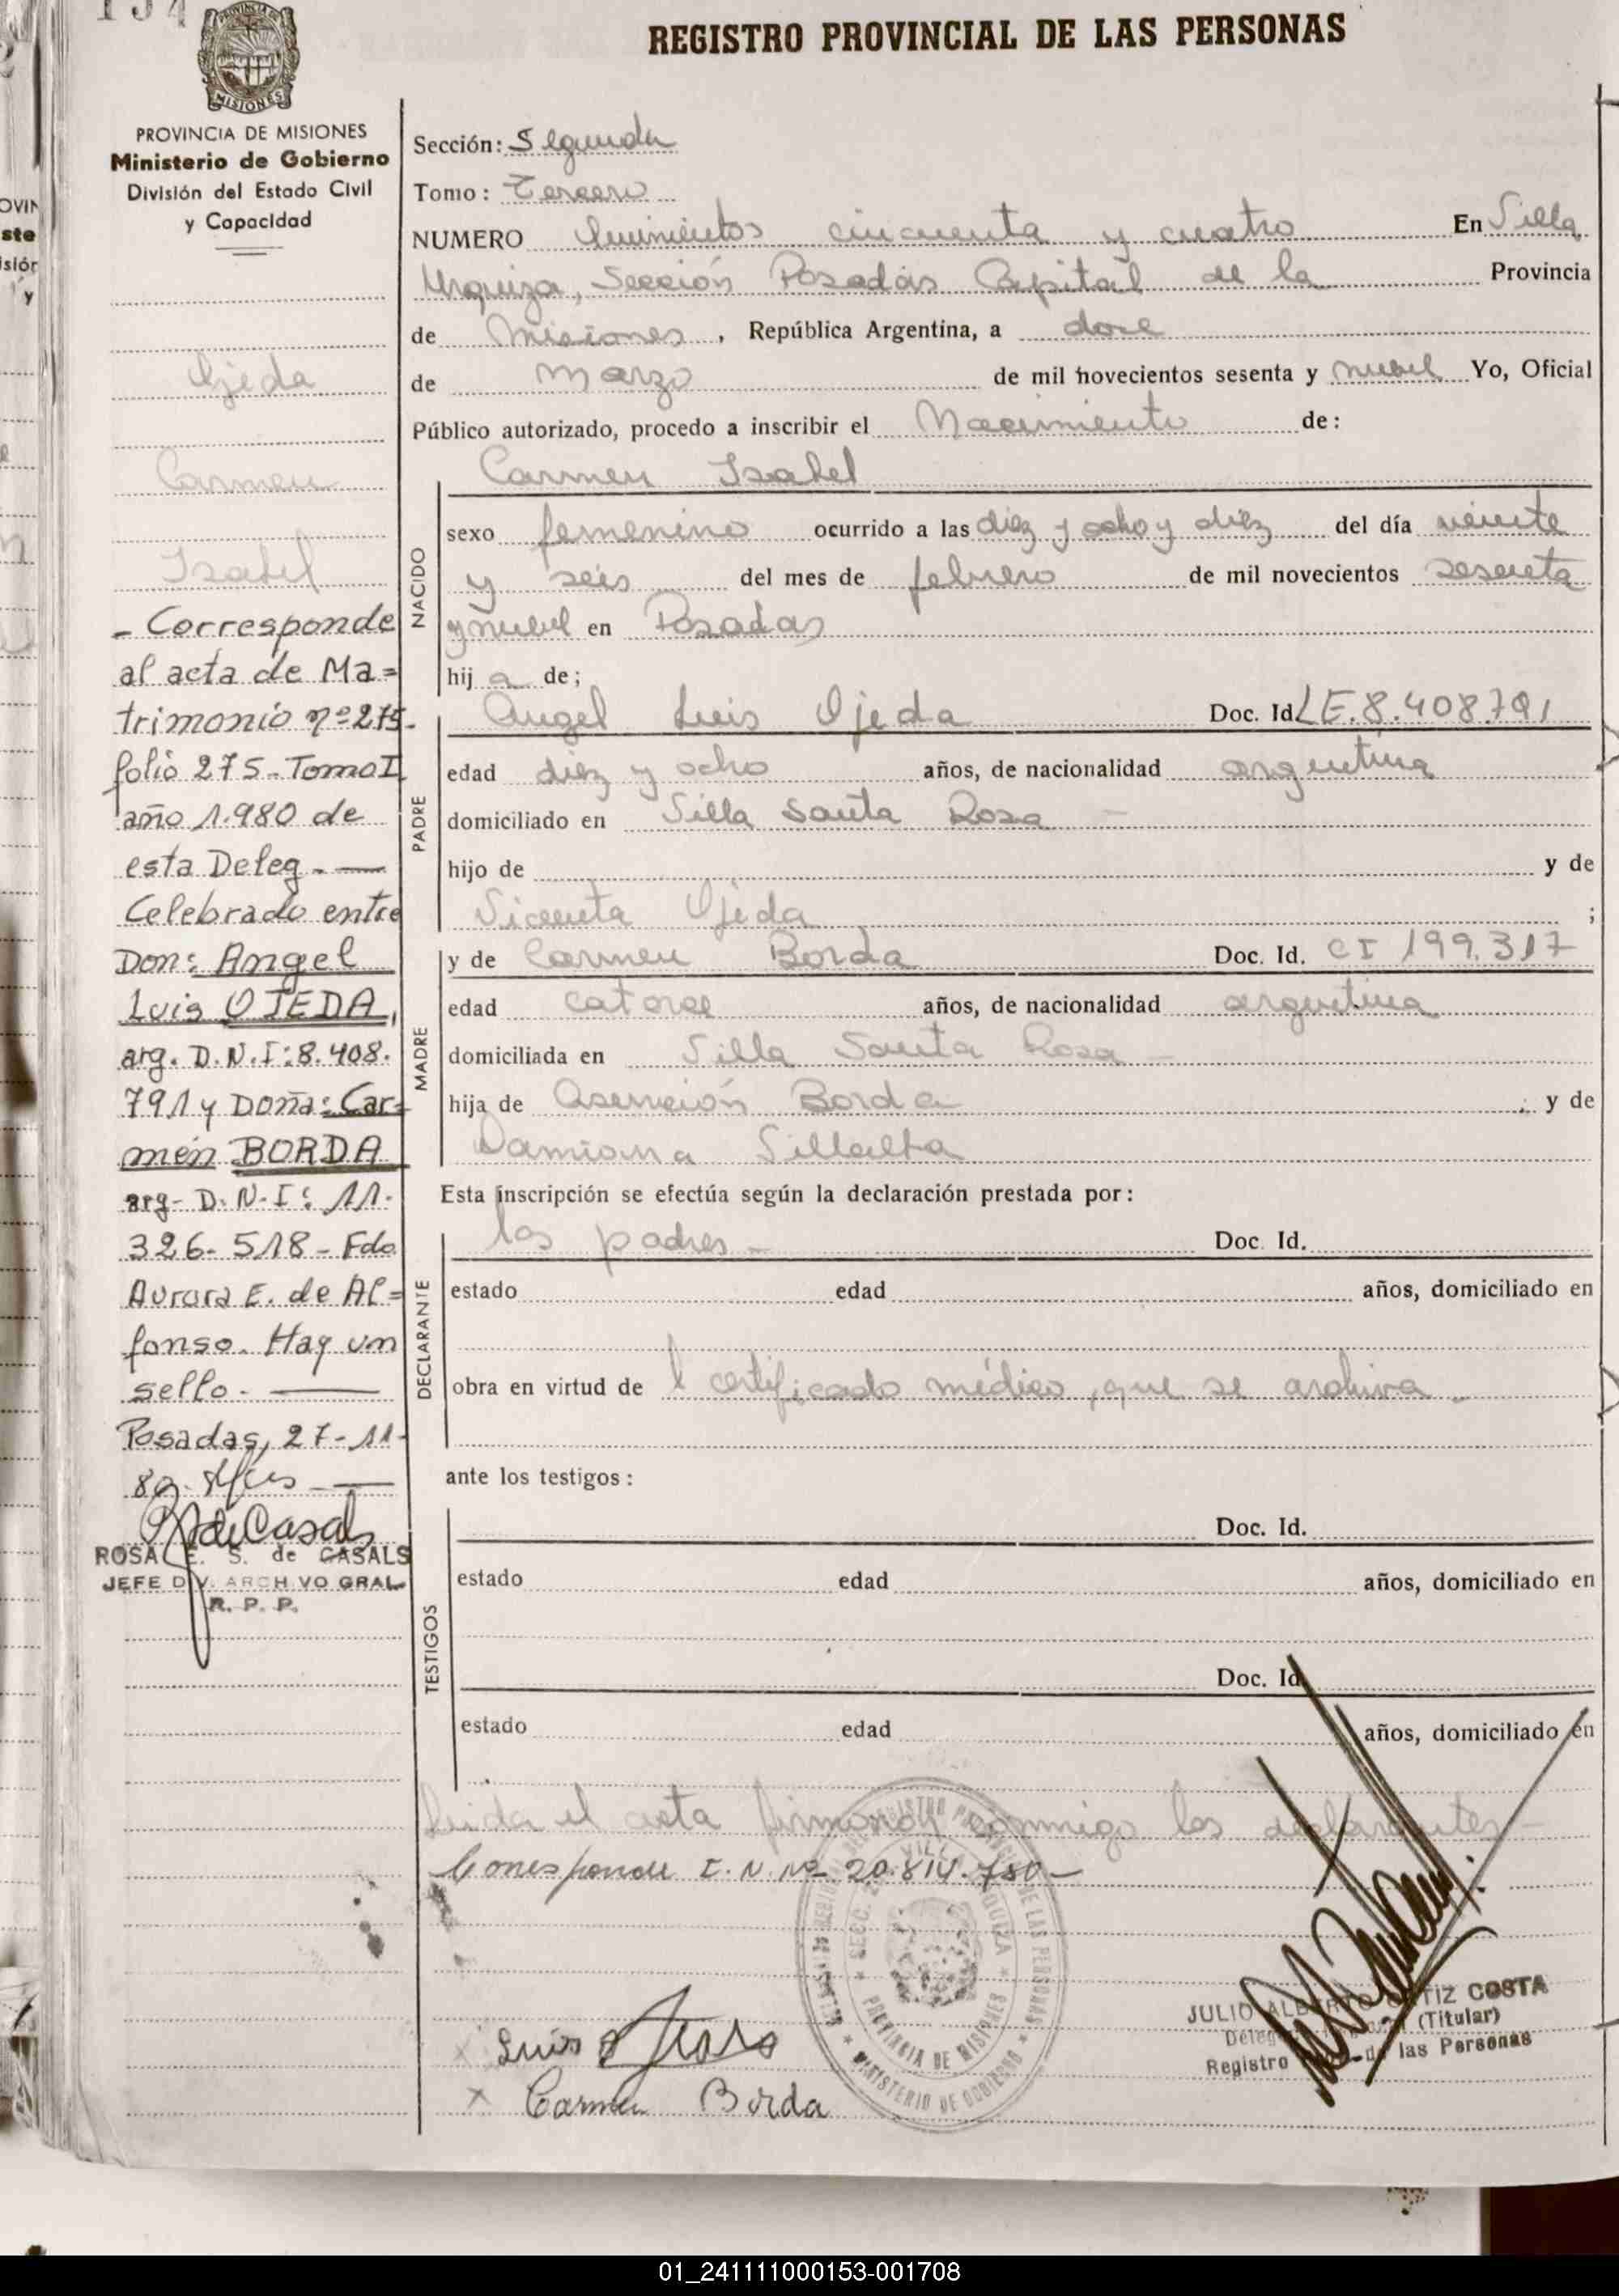 REGISTRO PROVINCIAL DE LAS PERSONAS
MISIONES
PROVINCIA DE MISIONES
Ministerio de Gobierno
División del Estado Civil
y Capacidad
Ojeda
Carmen
Isabel
- Corresponde
al acta de Ma=
trimonio nº 275-
folio 275-Tomo I
año 1.980 de
esta Deleg. —
Celebrado entre
Don: Angel
Luis OJEDA,
arg. D.N.I: 8.408.
791 y Doña: Car=
men BORDA
arg- D.N.I: 11.
326-518- Fdo
Aurora E. de Al=
fonso. Hay un
sello. —
Posadas, 27-11-
80.
ROSA E. S. de CASALS
JEFE DIV. ARCHIVO GRAL.
R. P. P.
Sección: Segunda
Tomo: Tercero
NUMERO Quinientos cincuenta y cuatro En Villa
Urquiza, Sección Posadas Capital de la Provincia
de Misiones, República Argentina, a doce
de Marzo de mil novecientos sesenta y nueve Yo, Oficial
Público autorizado, procedo a inscribir el Nacimiento de:
NACIDO
Carmen Isabel
sexo femenino ocurrido a las diez y ocho y diez del día veinte
y seis del mes de febrero de mil novecientos sesenta
y nueve en Posadas
hij a de;
PADRE
Angel Luis Ojeda Doc. Id. LE.8.408.791
edad diez y ocho años, de nacionalidad argentina
domiciliado en Villa Santa Rosa -
hijo de y de
Vicenta Ojeda ;
MADRE
y de Carmen Borda Doc. Id. CI 199.317
edad catorce años, de nacionalidad argentina
domiciliada en Villa Santa Rosa -
hija de Asención Borda ; y de
Damiana Villalba
Esta inscripción se efectúa según la declaración prestada por:
DECLARANTE
los padres - Doc. Id.
estado edad años, domiciliado en
obra en virtud de l certificado médico, que se archiva -
ante los testigos:
TESTIGOS
Doc. Id.
estado edad años, domiciliado en
Doc. Id.
estado edad años, domiciliado en
Leida el acta firman conmigo los declarantes -
Corresponde I.N.Nº 20.814.780-
PROVINCIA DE MISIONES
MINISTERIO DE GOBIERNO
x Luis
x Carmen Borda
JULIO ALBERTO ORTIZ COSTA
(Titular)
Registro de las Personas
01_241111000153-001708